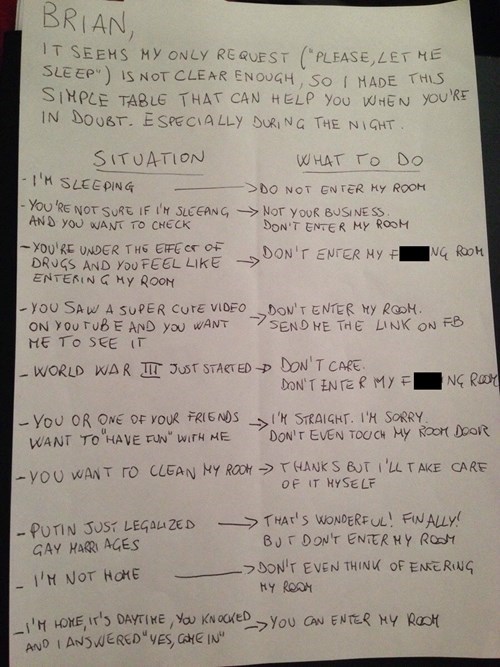 BRIAN,
IT SEEMS MY ONLY REQUEST ("PLEASE, LET ME
SLEEP") IS NOT CLEAR ENOUGH, SO I MADE THIS
SIMPLE TABLE THAT CAN HELP YOU WHEN YOU'RE
IN DOUBT. ESPECIALLY DURING THE NIGHT.
SITUATION WHAT TO DO
- I'M SLEEPING → DO NOT ENTER MY ROOM
- YOU'RE NOT SURE IF I'M SLEEPING → NOT YOUR BUSINESS.
AND YOU WANT TO CHECK DON'T ENTER MY ROOM
- YOU'RE UNDER THE EFFECT OF → DON'T ENTER MY F NG ROOM
DRUGS AND YOU FEEL LIKE
ENTERING MY ROOM
- YOU SAW A SUPER CUTE VIDEO → DON'T ENTER MY ROOM.
ON YOUTUBE AND YOU WANT SEND ME THE LINK ON FB
ME TO SEE IT
- WORLD WAR III JUST STARTED → DON'T CARE.
DON'T ENTER MY F NG ROOM
- YOU OR ONE OF YOUR FRIENDS → I'M STRAIGHT. I'M SORRY.
WANT TO "HAVE FUN" WITH ME DON'T EVEN TOUCH MY ROOM DOOR
- YOU WANT TO CLEAN MY ROOM → THANKS BUT I'LL TAKE CARE
OF IT MYSELF
- PUTIN JUST LEGALIZED → THAT'S WONDERFUL! FINALLY!
GAY MARRIAGES BUT DON'T ENTER MY ROOM
- I'M NOT HOME → DON'T EVEN THINK OF ENTERING
MY ROOM
- I'M HOME, IT'S DAYTIME, YOU KNOCKED → YOU CAN ENTER MY ROOM
AND I ANSWERED "YES, COME IN"